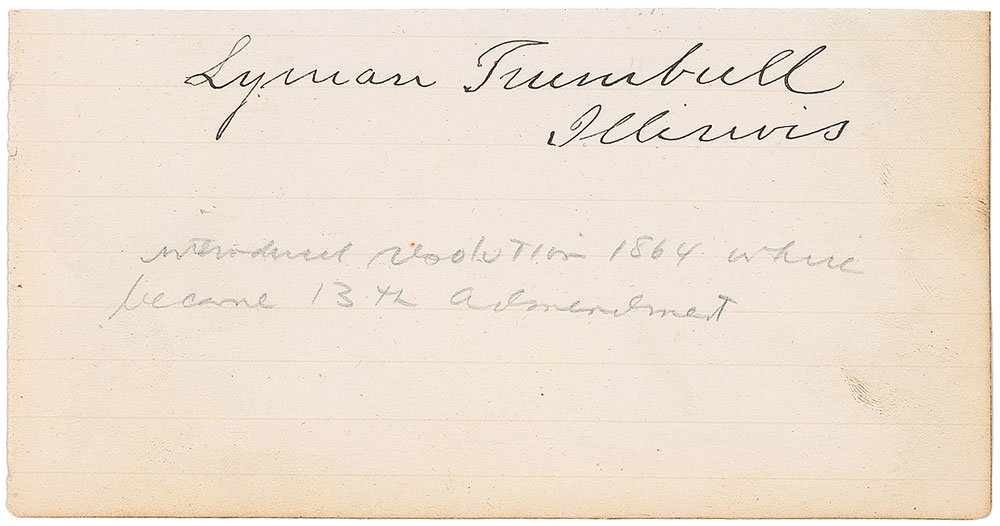 Lyman Trumbull
Illinois
introduced resolution 1864 which
became 13th Admendment